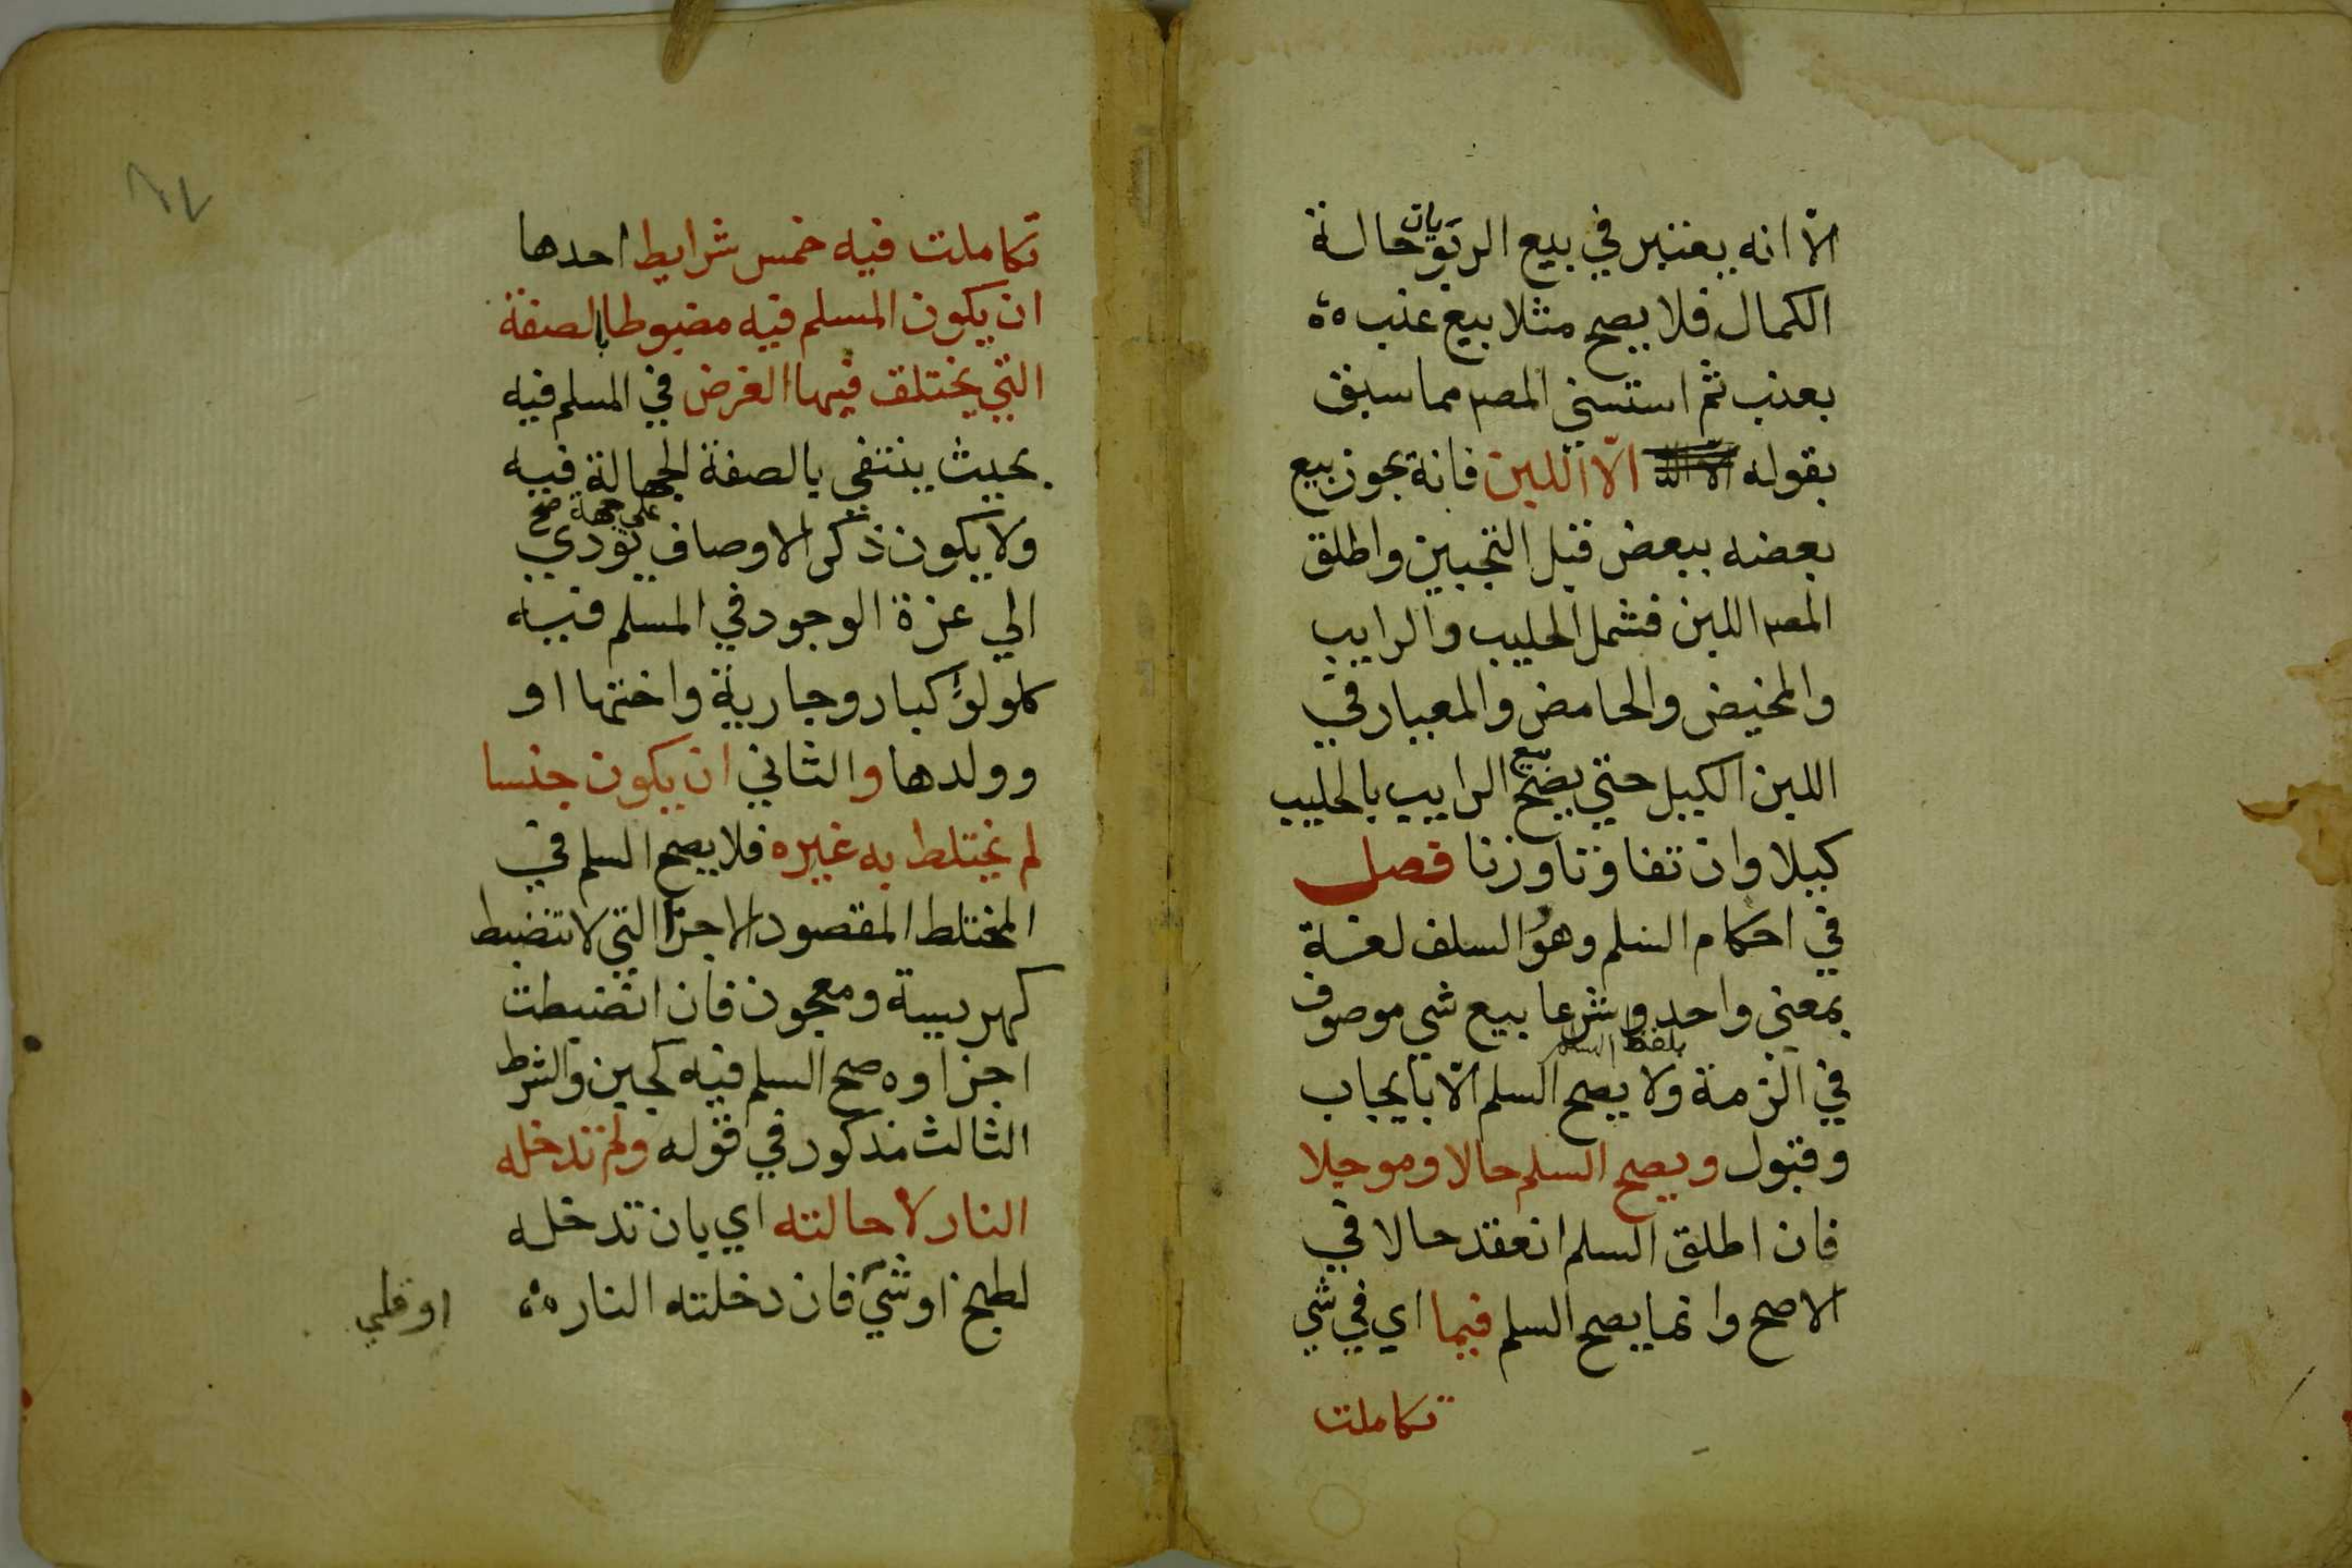 الا انه يعتبر في بيع الربويات حالة
الكمال فلا يصح مثلا بيع عنب
بعنب ثم استسني المصـ مما سبق
بقوله الا اللبن فانة يجوز بيع
بعضه ببعض قبل التجبين واطلق
المصـ اللبن فشمل الحليب والرايب
والمخيض والحامض والمعيار في
اللبن الكيل حتي يصح بيع الرايب بالحليب
كيلا وان تفاوتا وزنا فصل
في احكام السلم وهو السلف لغة
بمعني واحد وشرعا بيع شي موصوف
في الزمة ولا يصح السلم الا بايجاب
بلفظ السلم
وقبول ويصح السلم حالا وموجلا
فان اطلق السلم انعقد حالا في
الاصح وانما يصح السلم فيما اي في شي
تكاملت
تكاملت فيه خمس شرايط احدها
ان يكون المسلم فيه مضبوطا بالصفة
التي يختلف فيها الغرض في المسلم فيه
بحيث ينتفي بالصفة الجهالة فيه
ولا يكون ذكر الاوصاف علي جهة صح تودي
الي عزة الوجود في المسلم فيه
كلولؤ كبار وجارية واختها او
وولدها والثاني ان يكون جنسا
لم يختلط به غيره فلا يصح السلم في
المختلط المقصود الاجزا التي لا تنضبط
كهريسة ومعجون فان انضبطت
اجزاوه صح السلم فيه كجبن والشرط
الثالث مذكور في قوله ولم تدخله
النار لاحالته اي بان تدخله
لطبخ او شي فان دخلته النار
او قلي